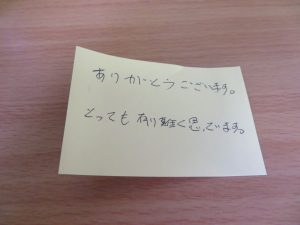 ありがとうございます。
とっても有り難く思っています。